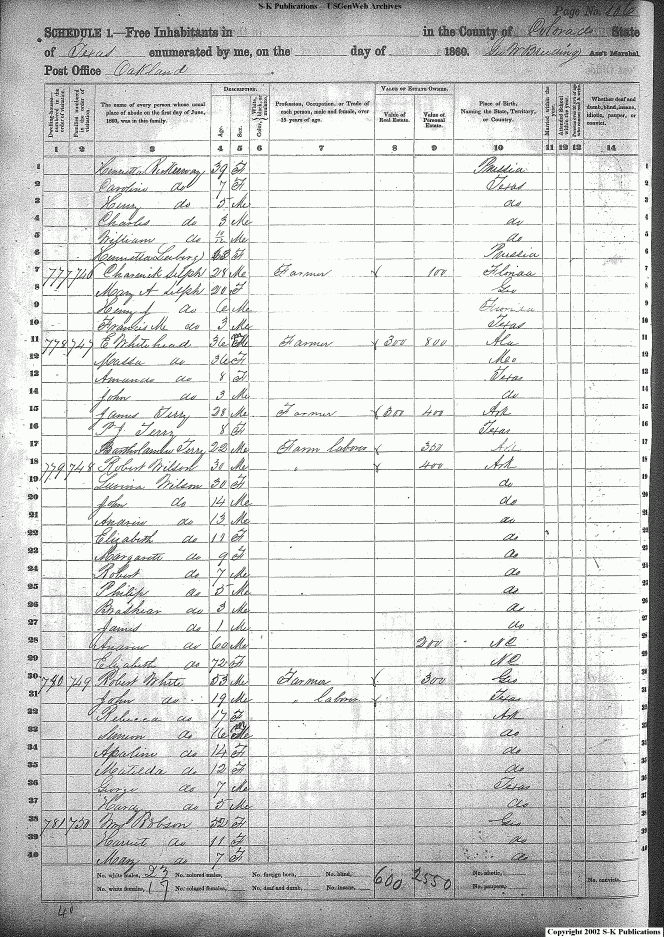 S-K Publications – USGenWeb Archives
Page No.
SCHEDULE 1.—Free Inhabitants in in the County of Colorado State
of Texas enumerated by me, on the day of 1860. Geo W Breeding Ass't Marshal
Post Office Oakland
DESCRIPTION. VALUE OF ESTATE OWNED.
Dwelling-houses—numbered in the order of visitation. Families numbered in the order of visitation. The name of every person whose usual place of abode on the first day of June, 1860, was in this family. Age. Sex. Color, Profession, Occupation, or Trade of each person, male and female, over 15 years of age. Value of Real Estate. Value of Personal Estate. Place of Birth, Naming the State, Territory, or Country. Married within the year. Attended School within the year. Whether deaf and dumb, blind, insane, idiotic, pauper, or convict.
1 2 3 4 5 6 7 8 9 10 11 12 13 14
1 Henrietta 39 F Prussia 1
2 Caroline do 7 F Texas 2
3 Henry do 5 M do 3
4 Charles do 3 M do 4
5 William do M do 5
6 Henrietta F Prussia 6
7 777 746 Silph 28 M Farmer 100 Florida 7
8 Mary A Silph 20 F Geo 8
9 Henry J do 6 M Florida 9
10 Francis M do 3 M Texas 10
11 778 747 E Whitehead 36 M Farmer 300 800 Ala 11
12 do 36 F Mo 12
13 Amanda do 8 F Texas 13
14 John do 3 M do 14
15 James Terry 28 M Farmer 300 400 Ark 15
16 P J Terry 8 F Texas 16
17 Bartholomew Terry 22 M Farm laborer 300 Ark 17
18 779 748 Robert Wilson 30 M " 400 Ark 18
19 Luvina Wilson 30 F do 19
20 John do 14 M do 20
21 Andrew do 13 M do 21
22 Elizabeth do 12 F do 22
23 Margarett do 9 F do 23
24 Robert do 7 M do 24
25 Philip do 5 M do 25
26 Brashear do 3 M do 26
27 James do 1 M do 27
28 Andrew do 60 M 200 NC 28
29 Elizabeth do 72 F NC 29
30 780 749 Robert White 53 M Farmer 300 Geo 30
31 John do 19 M " laborer Texas 31
32 Rebecca do 17 F Ark 32
33 Simeon do 16 M do 33
34 do 14 F do 34
35 Matilda do 12 F do 35
36 George do 7 M Texas 36
37 do 5 M do 37
38 781 750 Robson 52 F Geo 38
39 Harriet do 11 F do 39
40 Mary do 7 F do 40
No. white males, 23 No. colored males, No. foreign born, No. blind, 600 2550 No. idiotic, No. convicts,
No. white females, 17 No. colored females, No. deaf and dumb, No. insane, No. paupers,
40
Copyright 2002 S-K Publications